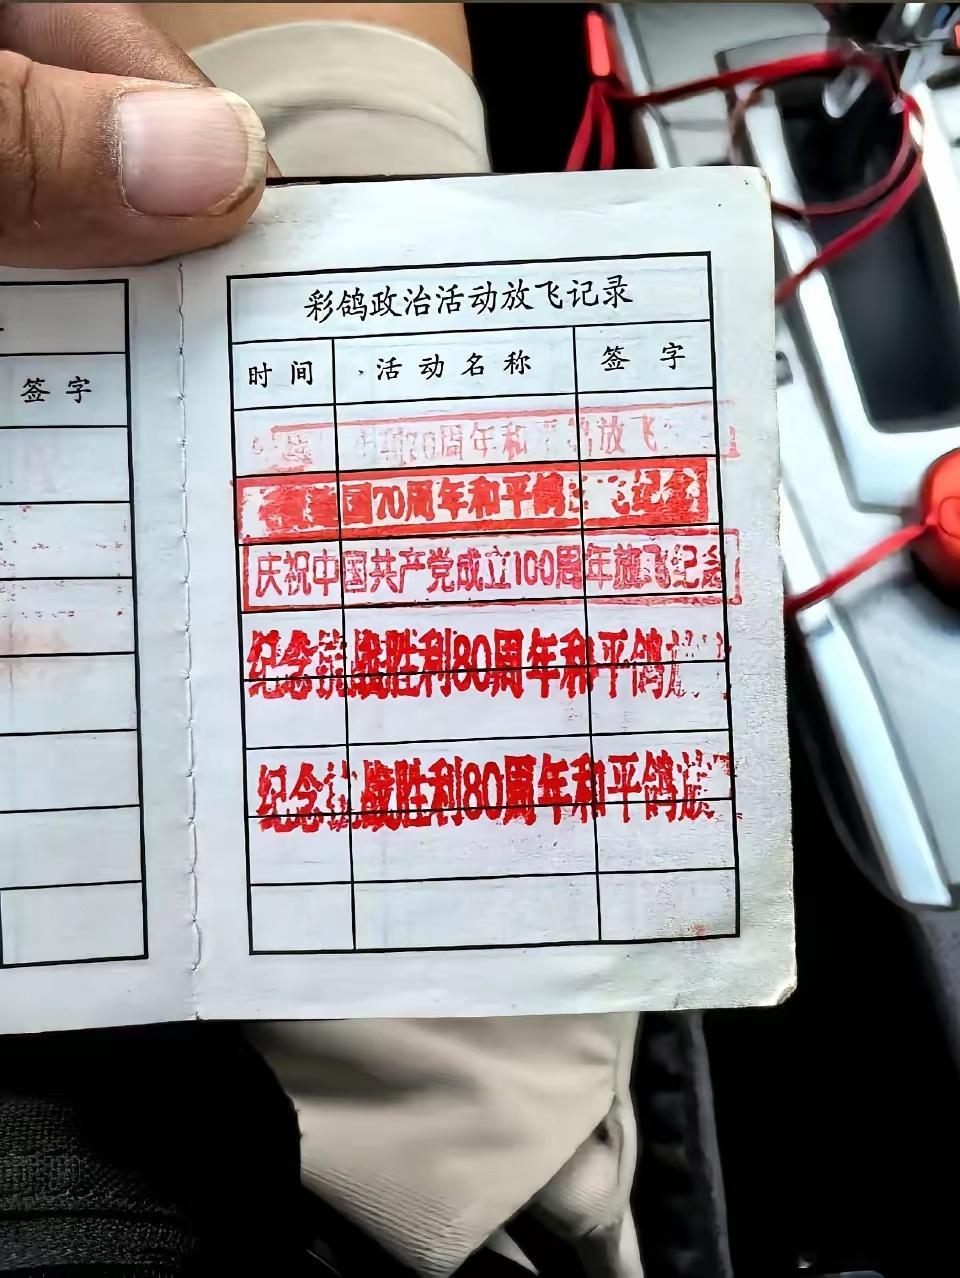 签字
彩鸽政治活动放飞记录
时间 活动名称 签字
70周年和平鸽放飞
国70周年和平鸽 飞纪念
庆祝中国共产党成立100周年放飞纪念
纪念抗战胜利80周年和平鸽放
纪念抗战胜利80周年和平鸽放飞